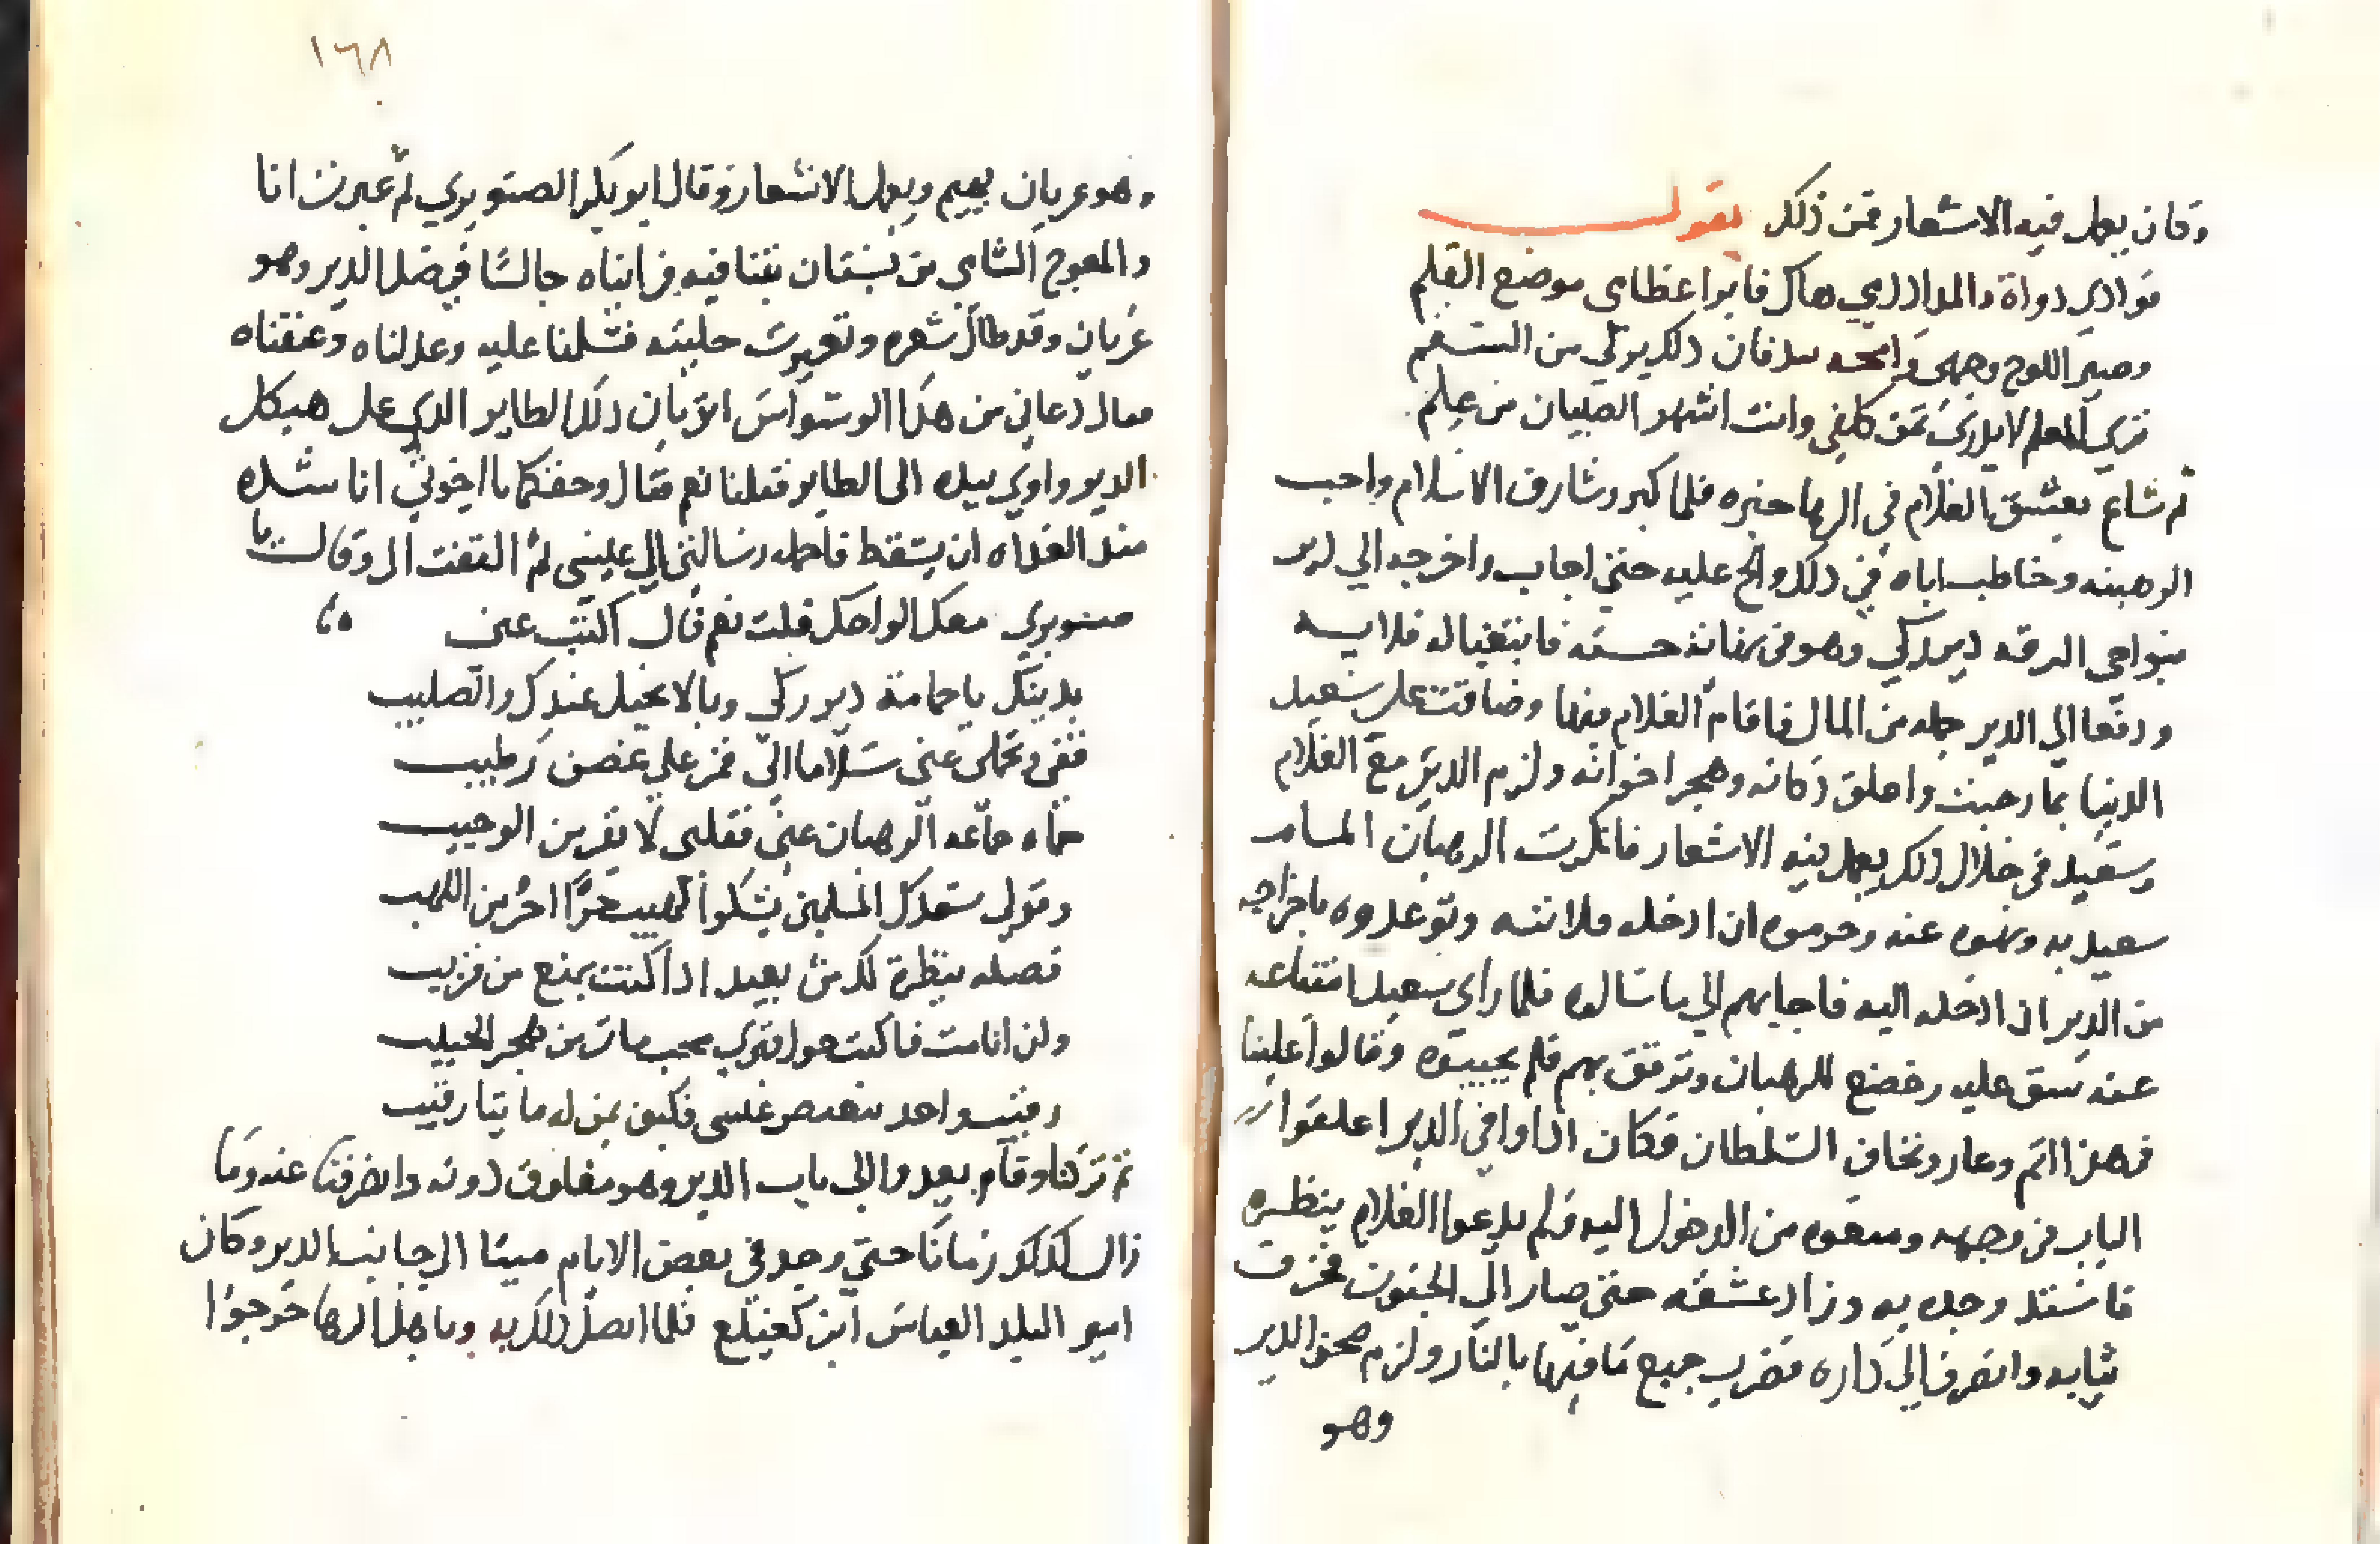 وكان يعمل فيه الاشعار فمن ذلك يقول
فوادي دواة والمداد دمي هاك فابرا عظامي موضع القلم
وصير اللوح وجهي وامحه بيد فان ذلك برء لي من السقم
تري المعلم لا يدري بمن كلفي وانت اشهر الصبيان من علم
ثم شاع بعشق الغلام في الرها خبره فلما كبر وشارف الاسلام واحب
الرهبنه وخاطب اباه في ذلك والح عليه حتي اجاب واخرجه الي دير
بنواحي الرقه دير زكي وهو في نهاية حسنه فابتغيا له قلايه
ودفعا الي الدير جمله من المال فاقام الغلام فيها وضاقت علي سعيد
الدنيا بما رحبت واغلق دكانه وهجر اخوانه ولزم الدير مع الغلام
وسعيد في خلال ذلك يعمل فيه الاشعار فانكرت الرهبان المام
سعيد به ونهوه عنه وحرموه ان ادخله قلايته وتوعدوه باخراجه
من الدير ان ادخله اليه فاجابهم الي ما سالوه فلما راي سعيد امتناعه
عنه شق عليه وخضع للرهبان وترفق بهم فلم يجيبوه وقالوا علينا
في هذا اثم وعار ونخاف السلطان فكان اذا وافي الدير اغلقوا
الباب في وجهه ومنعوه من الدخول اليه ولم يدعوا الغلام ينظره
فاشتد وجده به وزاد عشقه حتي صار الي الجنون فخرق
ثيابه وانصرف الي داره فضرب جميع ما فيها بالنار ولزم صحن الدير
وهو
١٦٨
وهو عريان يهيم ويعمل الاشعار وقال ابو بكر الصنوبري ثم عبرت انا
والمعوج الشامي من بستان بتنا فيه فرايناه جالسا في ظل الدير وهو
عريان وقد طال شعره وتغيرت حليته فسلمنا عليه وعدلناه وعنفناه
فقال دعاني من هذا الوسواس اتريان ذلك الطاير الذي علي هيكل
الدير واومي بيده الي الطاير فقلنا نعم فقال وحقكما يا اخوتي انا انشده
منذ الغداه ان يسقط فاحمله رسالتي الي عيسي ثم التفت الي وقال يا
صنوبري معك الواحك قلت نعم قال اكتب عني
بدينك يا حمامة دير زكي وبالانجيل عندك والصليب
قفي وتحملي عني سلاما الي قمر علي غصن رطيب
حماه جماعه الرهبان عني فقلبي لا يقر من الوجيب
وقولي سعدك المسكين يشكوا لهيب جوًا احر من اللهيب
فصله بنظرة لك من بعيد اذا كنت تمنع من قريب
وان انا مت فاكتب حول قبري محب مات من هجر الحبيب
رقيب واحد تنغيص عيش فكيف بمن له مايتا رقيب
ثم تركنا وقام يعدوا الي باب الدير وهو مغلوق دونه وانصرفنا عنه وما
زال كذلك زمانا حتي وجد في بعض الايام ميتا الي جانب الدير وكان
امير البلد العباس ابن كيغلغ فلما اتصل ذلك به وباهل الرها خرجوا